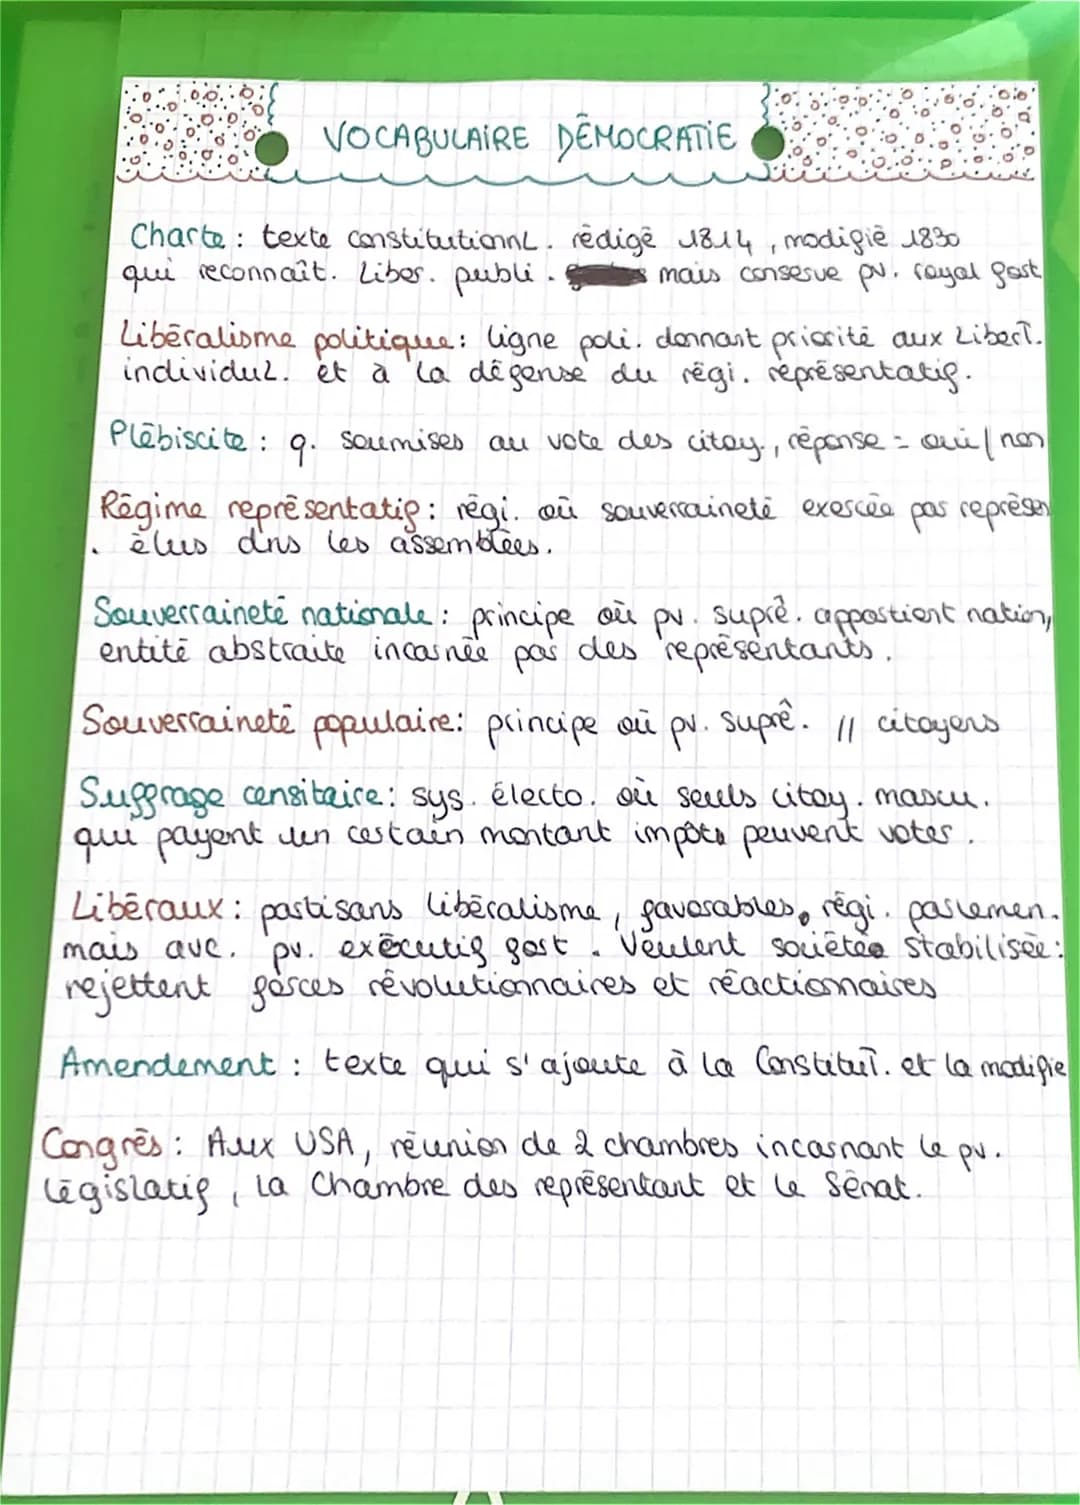 VOCABULAIRE DÉMOCRATIE
Charte : texte constitutionnL. rédigé 1814, modifié 1830
qui reconnaît. Liber. publi. mais conserve pv. royal fort
Libéralisme politique : ligne poli. donnant priorité aux LiberT.
individul. et à la défense du régi. représentatif.
Plébiscite : q. soumises au vote des citoy., réponse = oui / non
Régime représentatif : régi. où souverraineté exercée par représen
. élus dns les assemblées.
Souverraineté nationale : principe où pv. suprê. appartient nation,
entité abstraite incarnée par des représentants.
Souverraineté populaire : principe où pv. suprê. // citoyens
Suffrage censitaire : sys. électo. où seuls citoy. mascu.
qui payent un certain montant impôts peuvent voter.
Libéraux : partisans libéralisme, favorables, régi. parlemen.
mais avc. pv. exécutif fort. Veulent société stabilisée :
rejettent forces révolutionnaires et réactionnaires
Amendement : texte qui s'ajoute à la ConstituT. et la modifie
Congrès : Aux USA, réunion de 2 chambres incarnant le pv.
législatif, la Chambre des représentant et le Sénat.